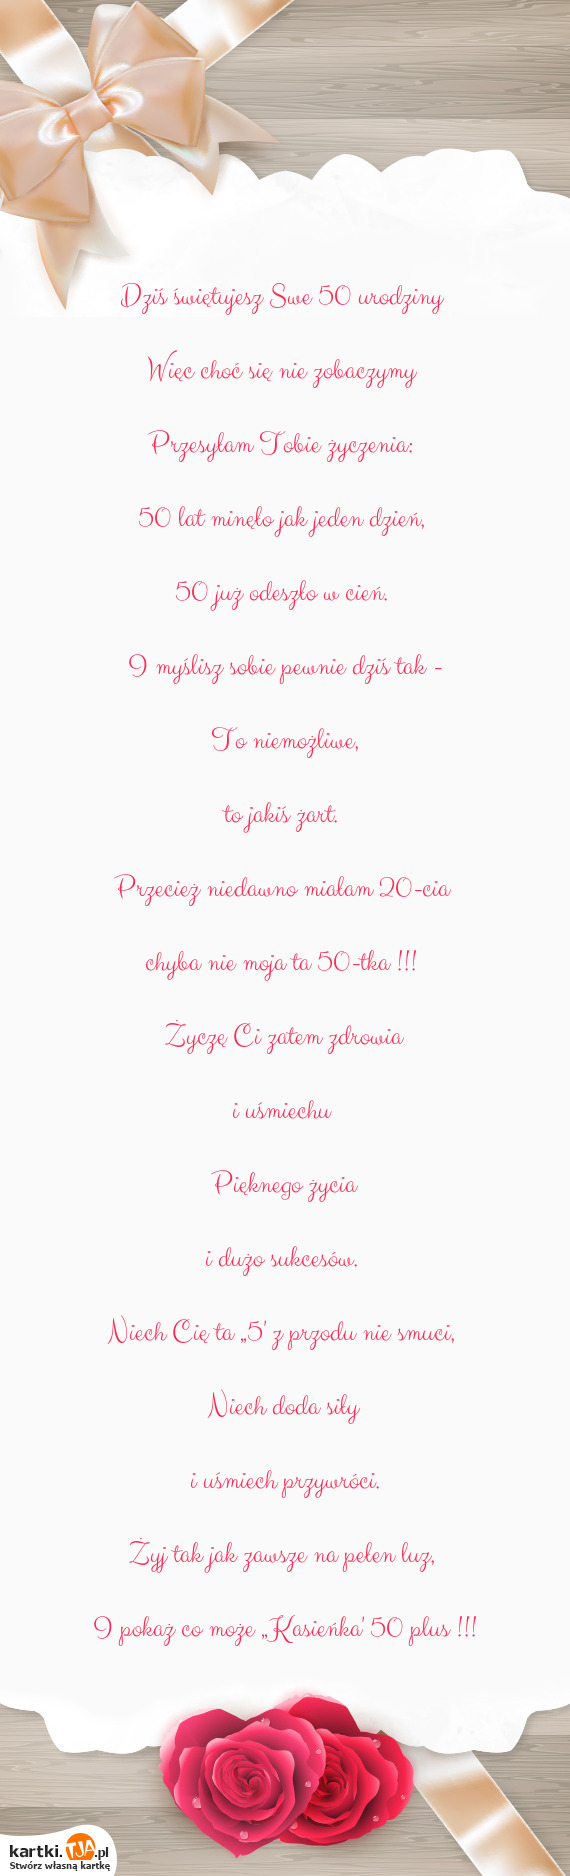 Dziś świętujesz Swe 50 urodziny
Więc choć się nie zobaczymy
Przesyłam Tobie życzenia:
50 lat minęło jak jeden dzień,
50 już odeszło w cień.
I myślisz sobie pewnie dziś tak -
To niemożliwe,
to jakiś żart.
Przecież niedawno miałam 20-cia
chyba nie moja ta 50-tka !!!
Życzę Ci zatem zdrowia
i uśmiechu
Pięknego życia
i dużo sukcesów.
Niech Cię ta „5' z przodu nie smuci,
Niech doda siły
i uśmiech przywróci.
Żyj tak jak zawsze na pełen luz,
I pokaż co może „Kasieńka' 50 plus !!!
kartki.TJA.pl
Stwórz własną kartkę